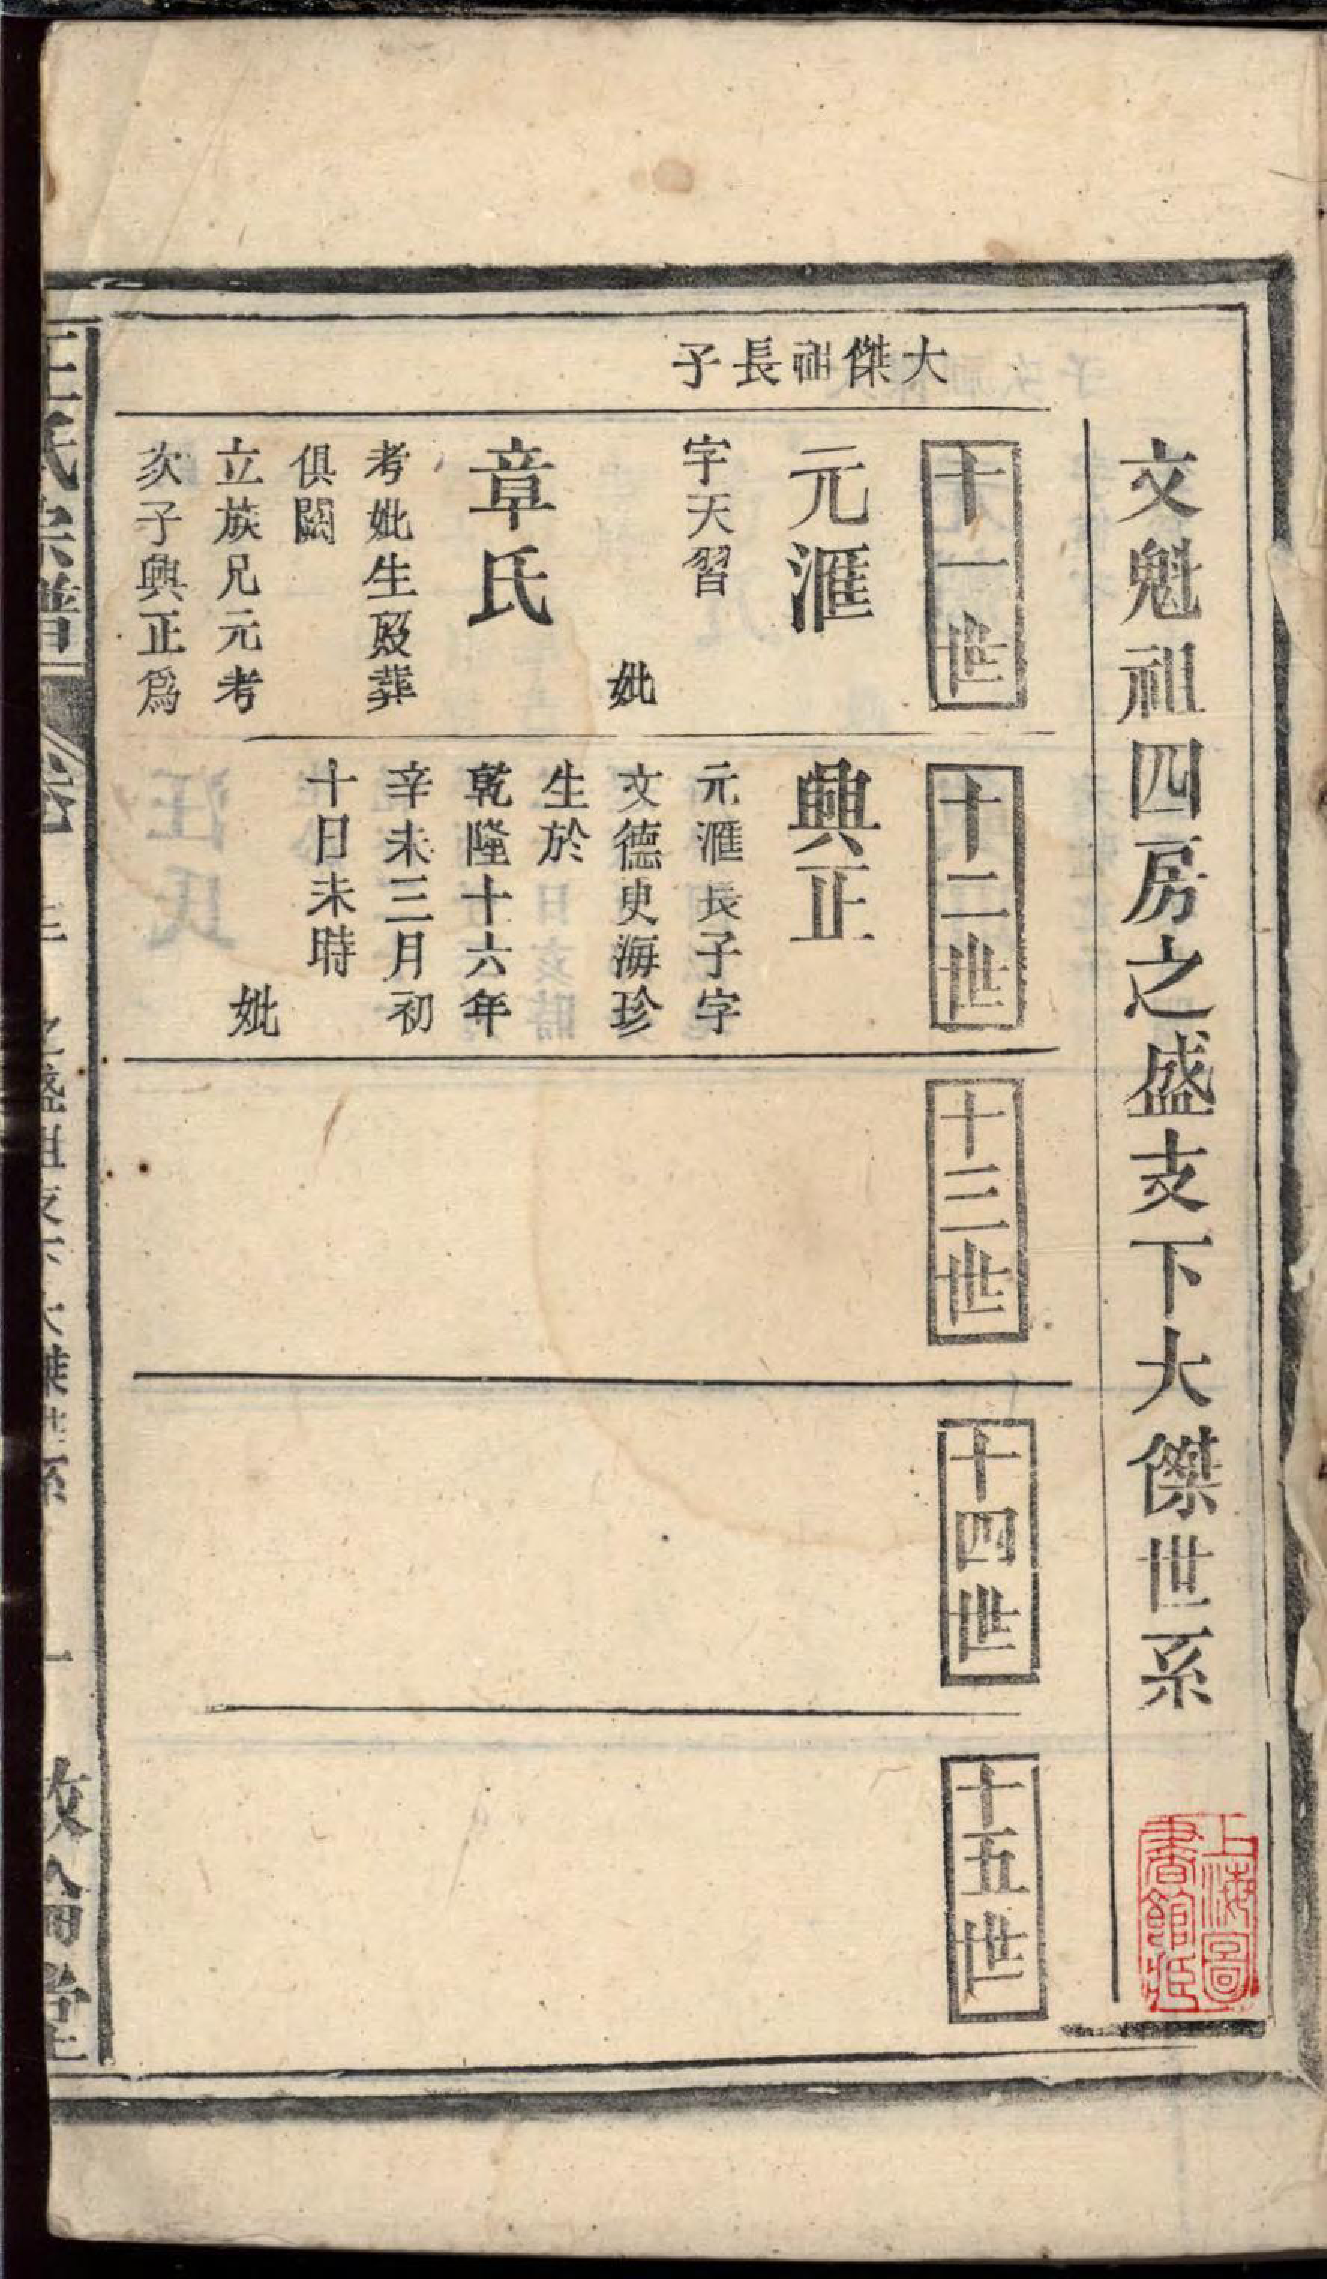 文魁祖四房之盛支下大傑世系
上海圖
書館藏
大傑祖長子
十一世
元滙
字天習
妣
章氏
考妣生殁葬
俱闕
立族兄元考
次子興正爲
十二世
興正
元滙長子字
文德史海珍
生於
乾隆十六年
辛未三月初
十日未時
妣
十三世
十四世
十五世
氏宗譜